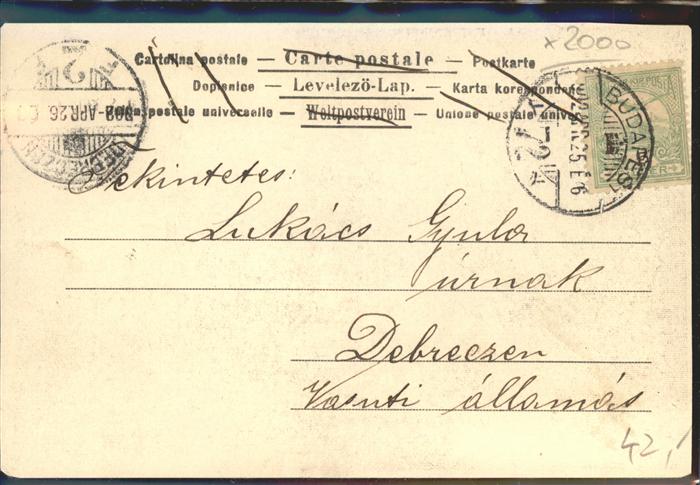 x2000
Cartolina postale — Carte postale — Postkarte
Dopisnice — Levelező-Lap. — Karta korespondens
postale universelle — Weltpostverein — Unione postale univer
BUDAPEST
902 APR. 26
Tekintetes:
Lukács Gyula
úrnak
Debreczen
Vasuti államás
42,